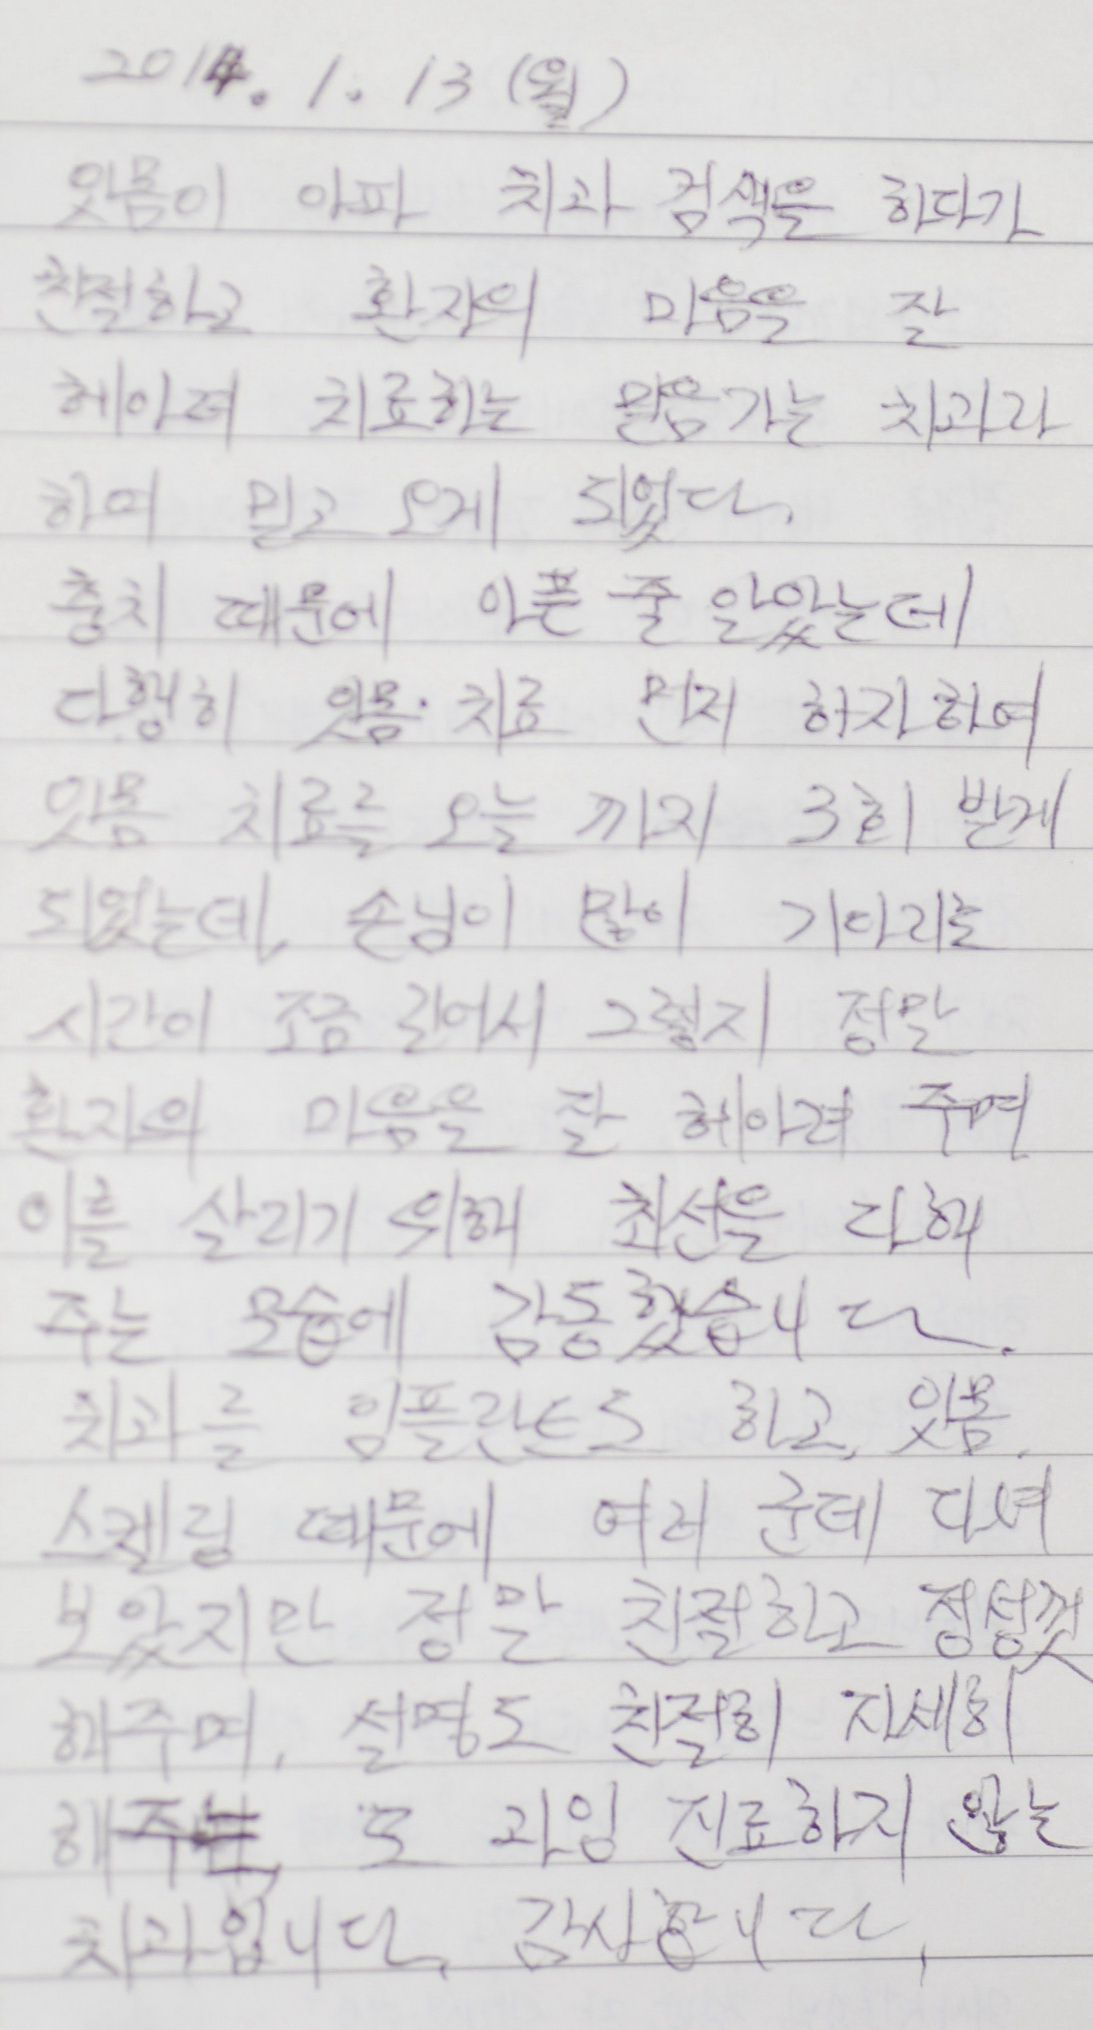 2014. 1. 13 (월)
잇몸이 아파 치과 검색을 하다가
친절하고 환자의 마음을 잘
헤아려 치료하는 믿음가는 치과라
하여 믿고 오게 되었다.
충치 때문에 아픈 줄 알았는데
다행히 잇몸 치료 먼저 하자하여
잇몸 치료를 오늘 까지 3회 받게
되었는데, 손님이 많이
시간이 조금 길어서 그렇지 정말
환자의 마음을 잘 헤아려 주며
이를 살리기 위해 최선을 다해
주는 모습에 감동했습니다.
치과를 임플란트도 하고, 잇몸,
스켈링 때문에 여러 군데 다녀
보았지만 정말 친절하고 정성껏
해주며, 설명도 친절히 자세히
해 도 과잉 진료하지 않는
치과입니다. 감사합니다.